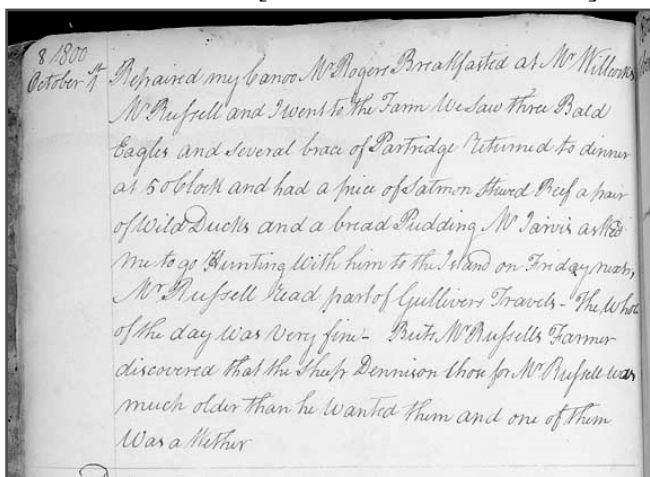 8 1800
October 1st Repaired my Canoe Mr Rogers Breakfasted at Mr Willcocks
Mr Russell and I went to the Farm We saw three Bald
Eagles and several brace of Partridge returned to dinner
at 5 oClock and had a piece of Salmon Stewed Beef a pair
of Wild Ducks and a bread Pudding Mr Jarvis asked
me to go Hunting With him to the Island on Friday next,
Mr Russell read part of Gullivers Travels - The whole
of the day was very fine - Buts Mr Russells Farmer
discovered that the sheep Dennison chose for Mr Russell was
much older than he wanted them and one of them
Was a Wether